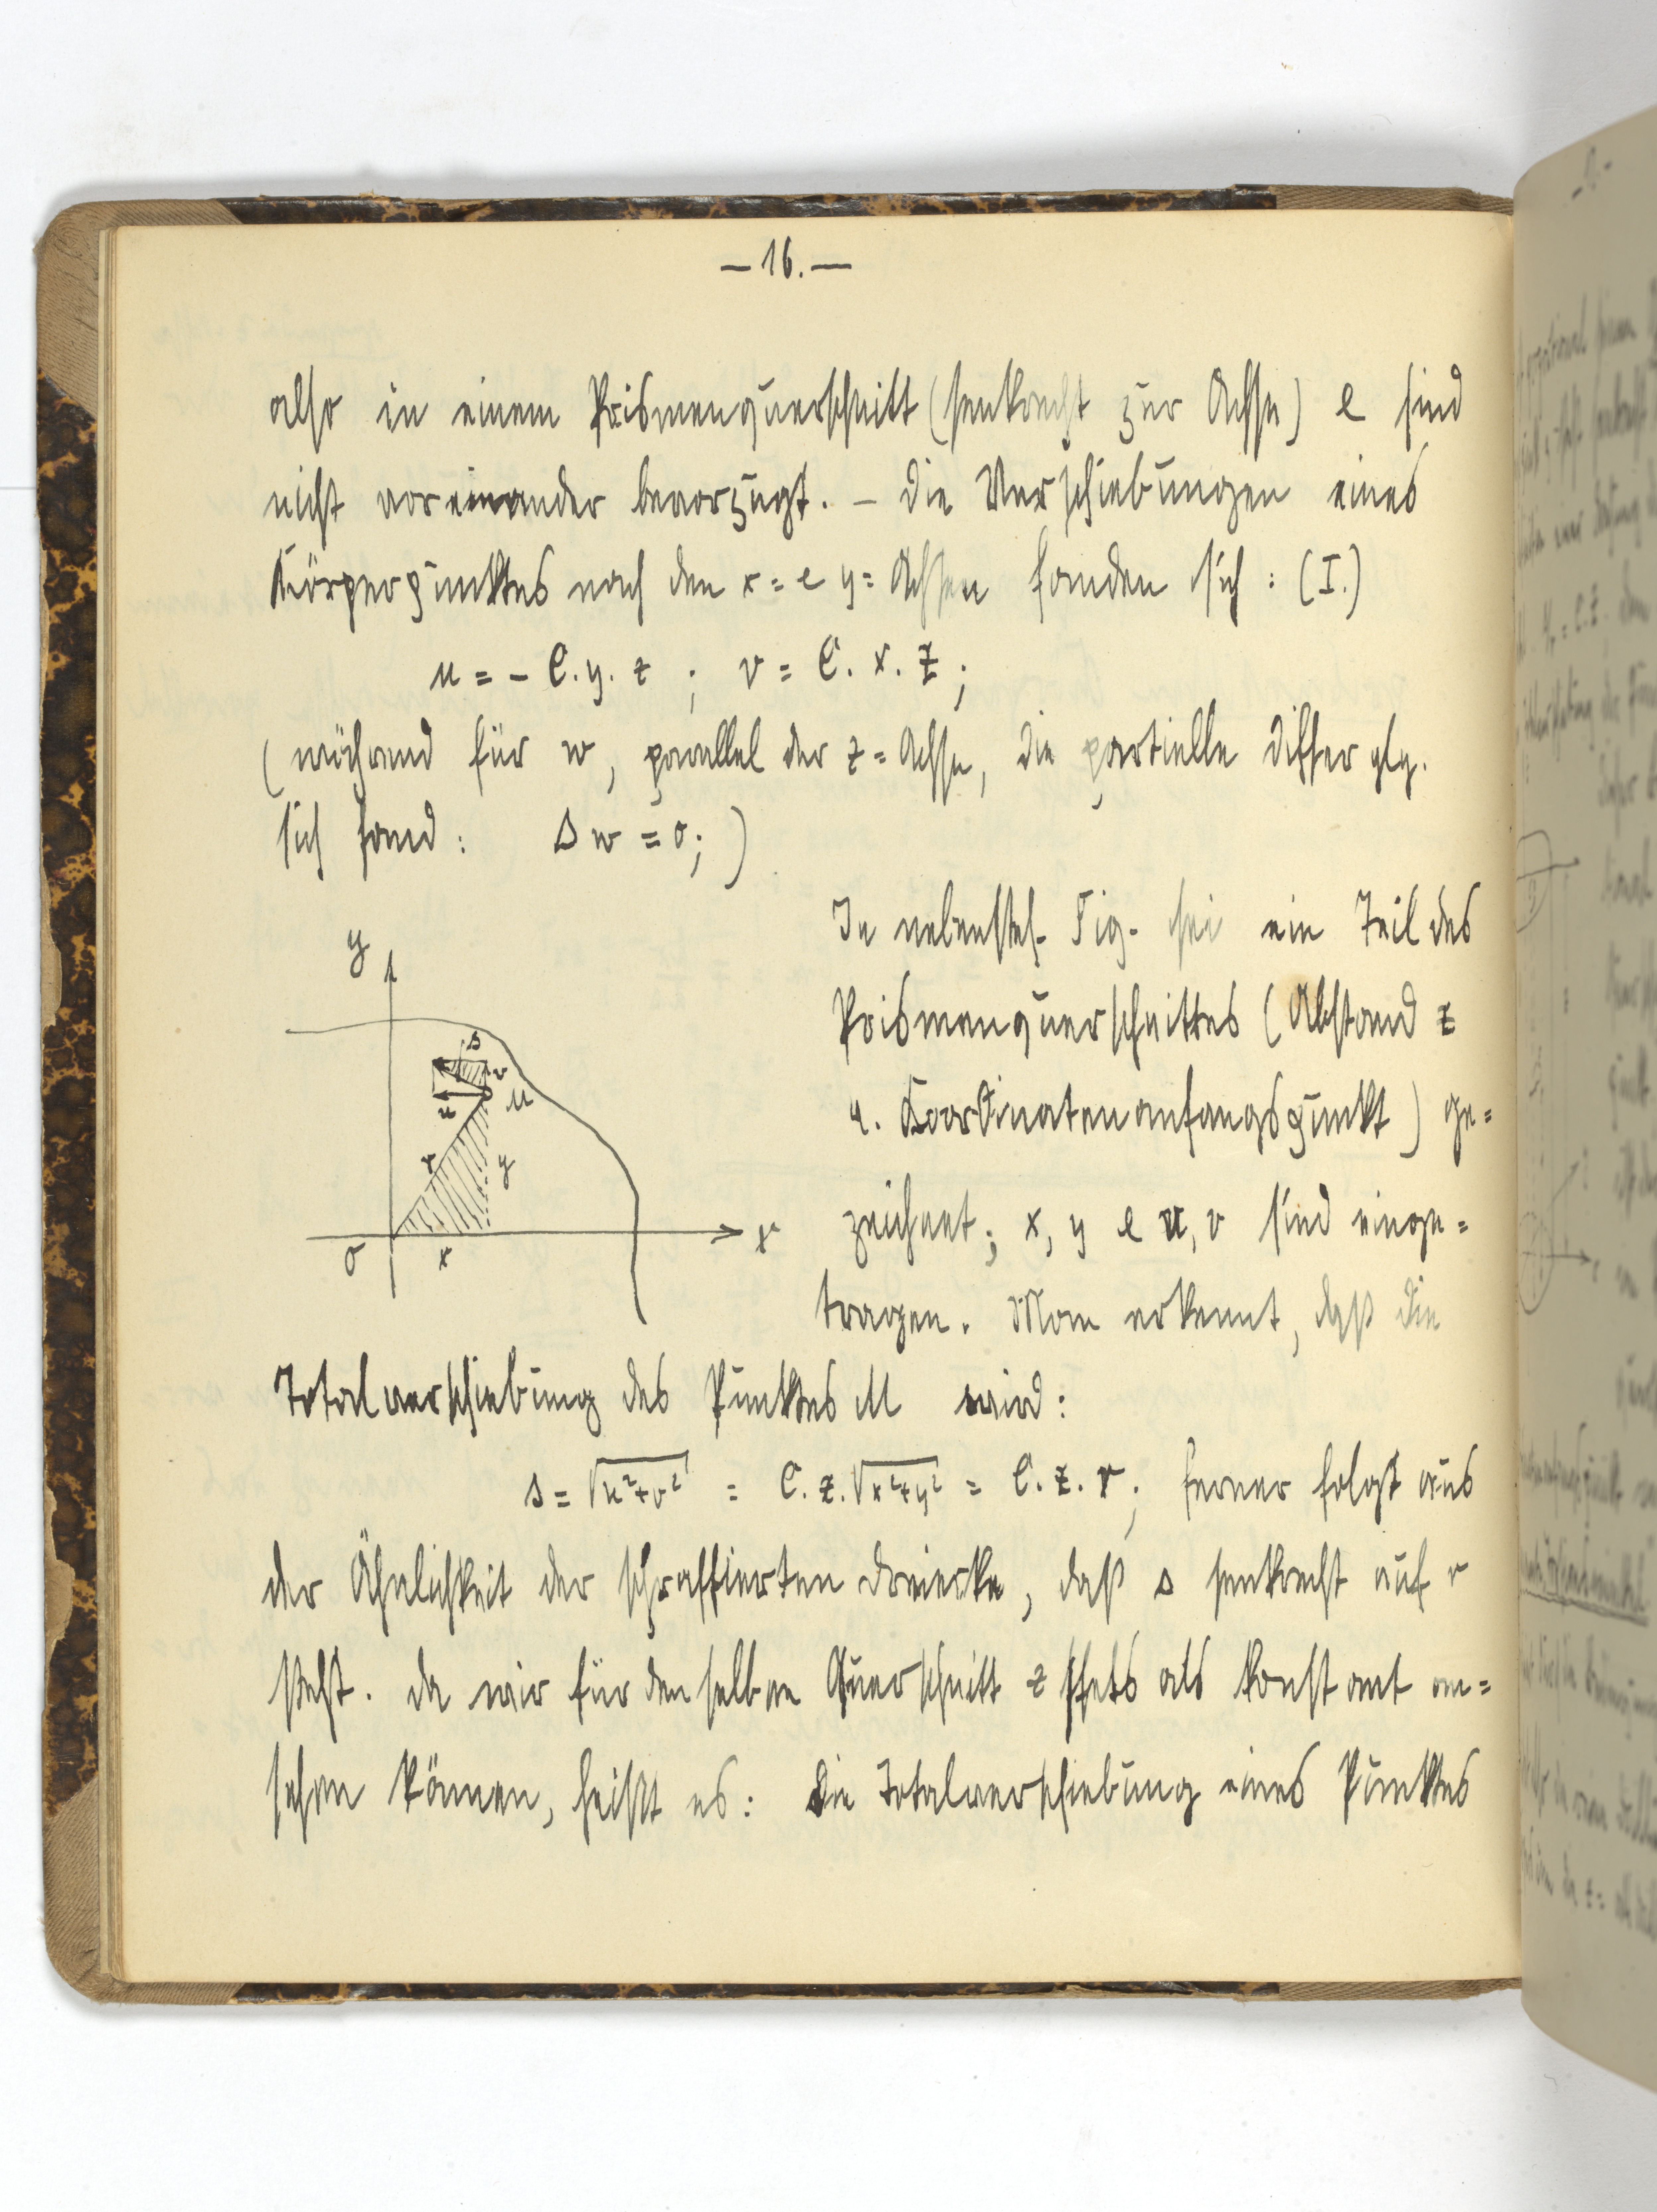 — 16. —
also in einem Prismenquerschnitt (senkrecht zur Achse) & sind
nicht voreinander bevorzugt. – Die Verschiebungen eines
Körperpunktes nach den x= & y= Achsen fanden sich: (I.)
u = – C. y. z ; v = C. x. z ;
(während für w, parallel der z=Achse, die partielle Differ glg.
sich fand: Δ w = 0; )
In nebensteh. Fig. sei ein Teil des
Prismenquerschnittes (Abstand z
v. Koordinatenanfangspunkt) ge=
zeichnet; x, y & u, v sind einge=
tragen. Man erkennt, daß die
y
s
v
u
M
r
y
O
x
x
Totalverschiebung des Punktes M wird:
s = √u²+v² = C. z. √x²+y² = C. z. r ; ferner folgt aus
der Ähnlichkeit der schraffierten Dreiecke, daß s senkrecht auf r
steht. Da wir für denselben Querschnitt z stets als konstant an=
sehen können, heißt es: Die Totalverschiebung eines Punktes